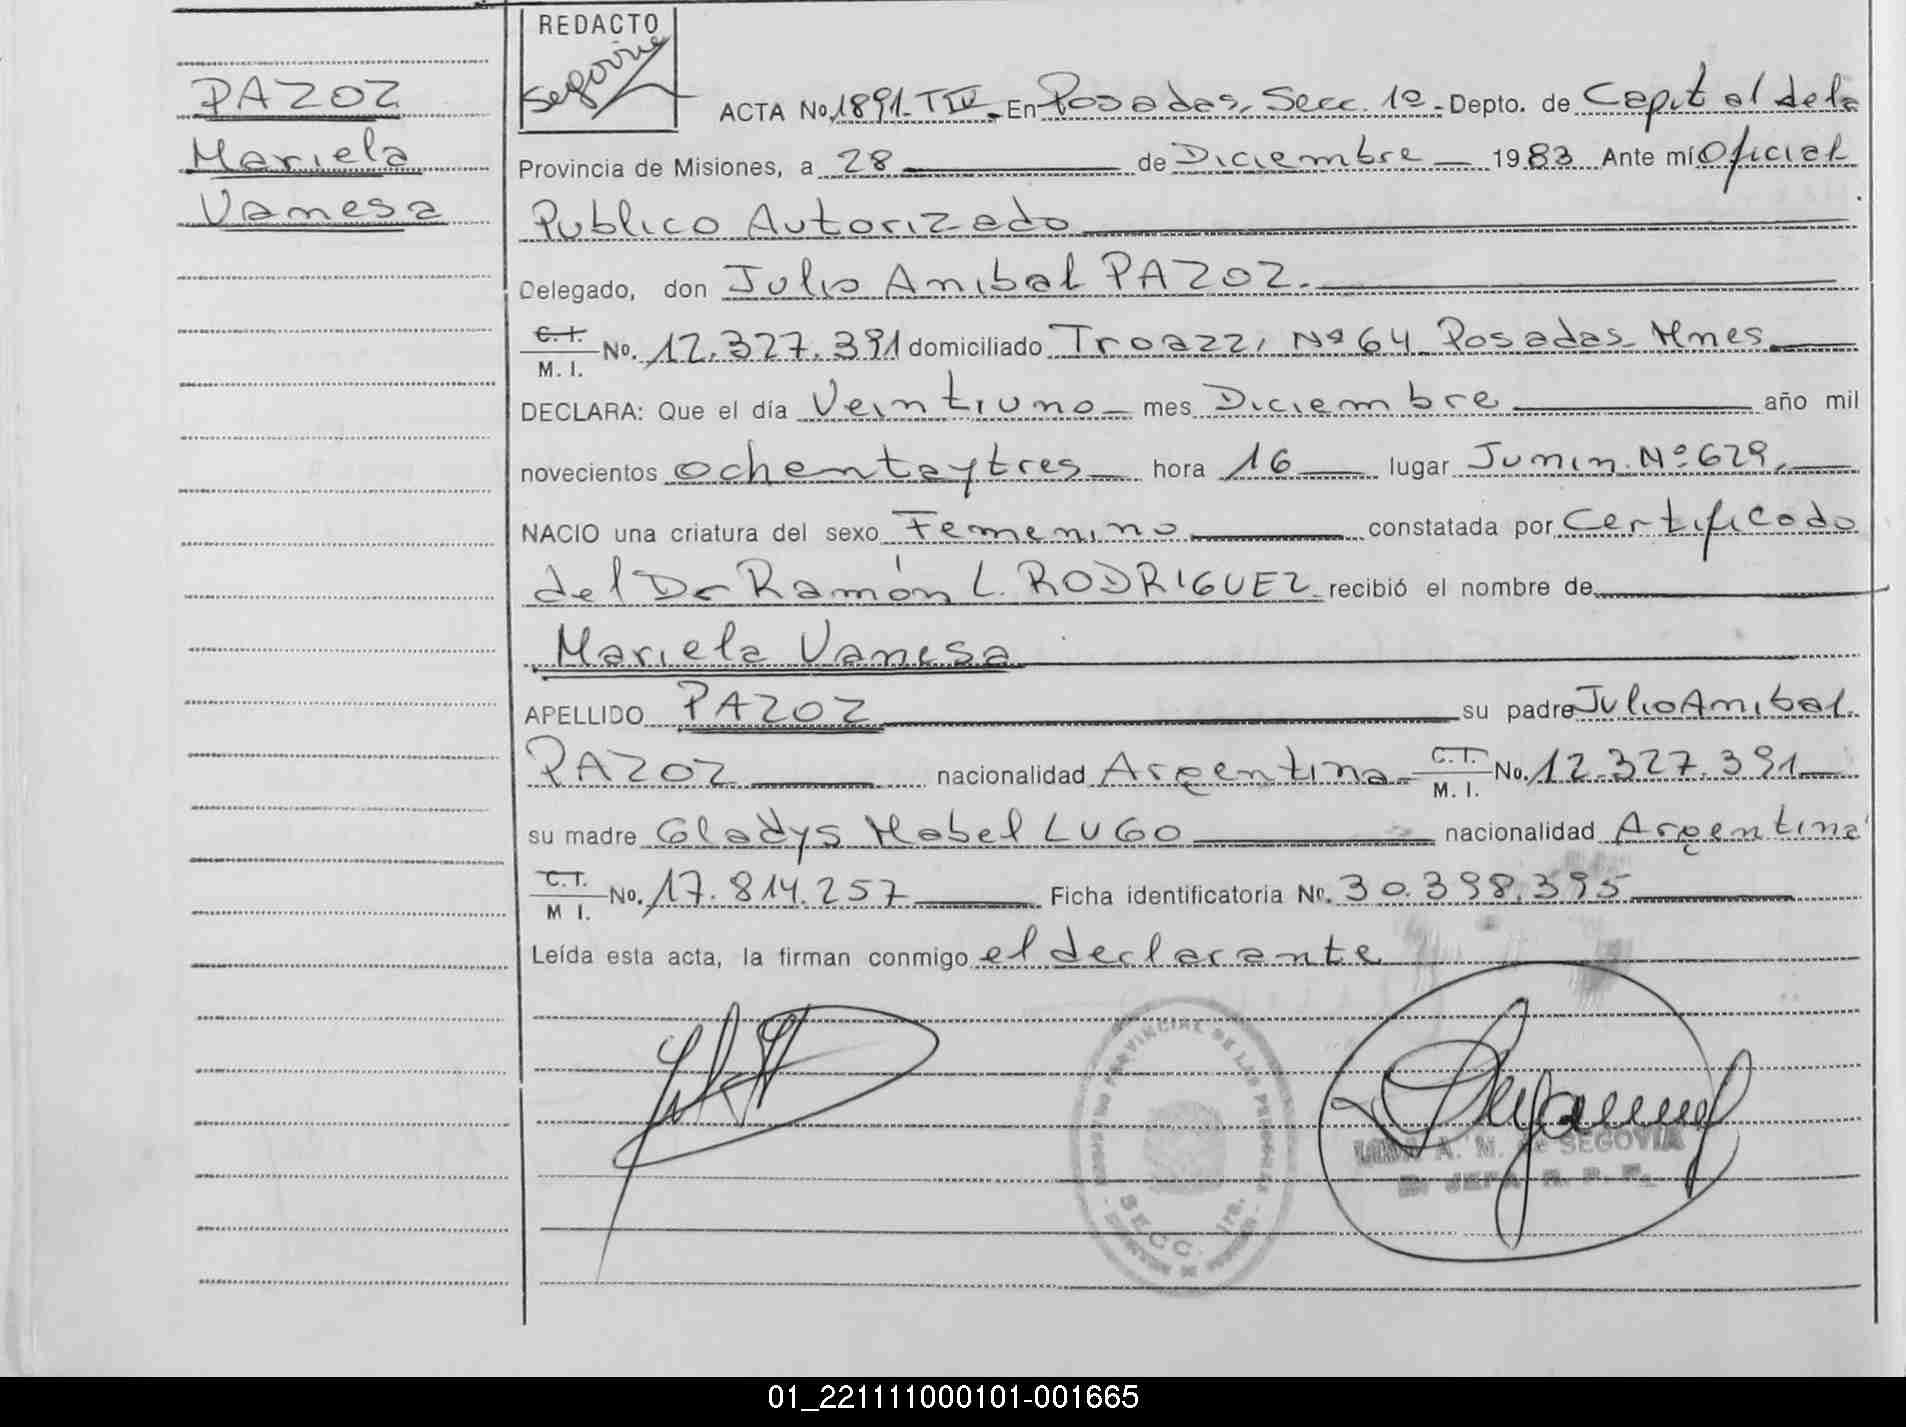 PAZOZ
Mariela
Vanesa
REDACTO
Segovia
ACTA No. 1891-TIV. En Posadas, Secc. 1º - Depto. de Capital de la
Provincia de Misiones, a 28 de Diciembre 1983 Ante mí Oficial
Publico Autorizado
Delegado, don Julio Anibal PAZOZ.
C.I. M. I. No. 12.327.391 domiciliado Troazzi Nº 64 Posadas Mnes
DECLARA: Que el día Veintiuno mes Diciembre año mil
novecientos ochentaytres hora 16 lugar Junin Nº 629,
NACIO una criatura del sexo Femenino constatada por Certificado
del Dr Ramón L. RODRIGUEZ recibió el nombre de
Mariela Vanesa
APELLIDO PAZOZ su padre Julio Anibal
PAZOZ nacionalidad Argentina C.I. M. I. No. 12.327.391
su madre Gladys Mabel LUGO nacionalidad Argentina
C.I. M I. No. 17.814.257 Ficha identificatoria Nº. 30.398.395
Leída esta acta, la firman conmigo el declarante
REGISTRO PROVINCIAL DE LAS PERSONAS
SECC. 1ra.
A. M. de SEGOVIA
JEFA R. P. P.
01_221111000101-001665